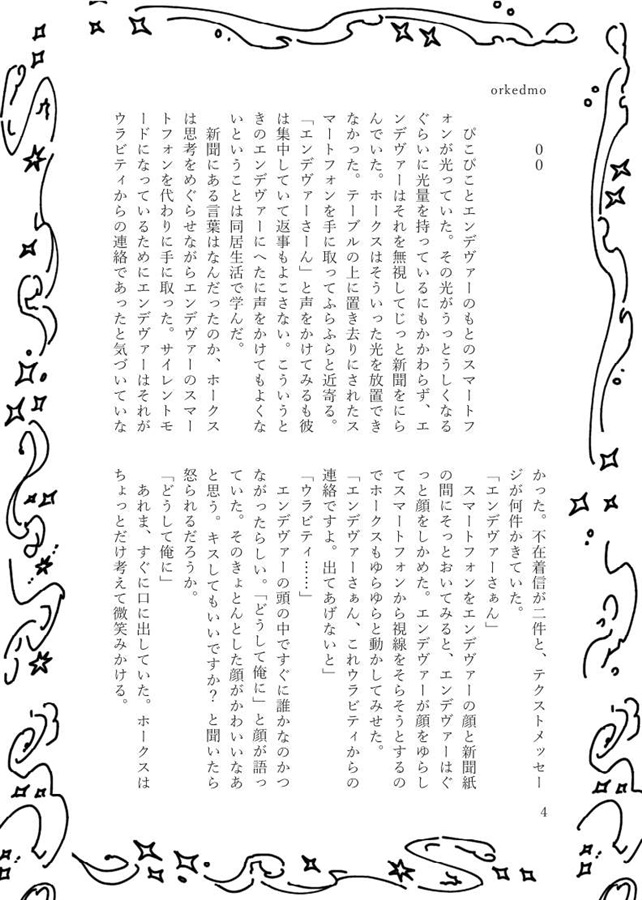 orkedmo
00
ぴこぴことエンデヴァーのもとのスマートフ
ォンが光っていた。その光がうっとうしくなる
ぐらいに光量を持っているにもかかわらず、エ
ンデヴァーはそれを無視してじっと新聞をにら
んでいた。ホークスはそういった光を放置でき
なかった。テーブルの上に置き去りにされたス
マートフォンを手に取ってふらふらと近寄る。
「エンデヴァーさーん」と声をかけてみるも彼
は集中していて返事もよこさない。こういうと
きのエンデヴァーにへたに声をかけてもよくな
いということは同居生活で学んだ。
新聞にある言葉はなんだったのか、ホークス
は思考をめぐらせながらエンデヴァーのスマー
トフォンを代わりに手に取った。サイレントモ
ードになっているためにエンデヴァーはそれが
ウラビティからの連絡であったと気づいていな
かった。不在着信が二件と、テクストメッセー
ジが何件かきていた。
「エンデヴァーさぁん」
スマートフォンをエンデヴァーの顔と新聞紙
の間にそっとおいてみると、エンデヴァーはぐ
っと顔をしかめた。エンデヴァーが顔をゆらし
てスマートフォンから視線をそらそうとするの
でホークスもゆらゆらと動かしてみせた。
「エンデヴァーさぁん、これウラビティからの
連絡ですよ。出てあげないと」
「ウラビティ……」
エンデヴァーの頭の中ですぐに誰かなのかつ
ながったらしい。「どうして俺に」と顔が語っ
ていた。そのきょとんとした顔がかわいいなあ
と思う。キスしてもいいですか？ と聞いたら
怒られるだろうか。
「どうして俺に」
あれま、すぐに口に出していた。ホークスは
ちょっとだけ考えて微笑みかける。
4